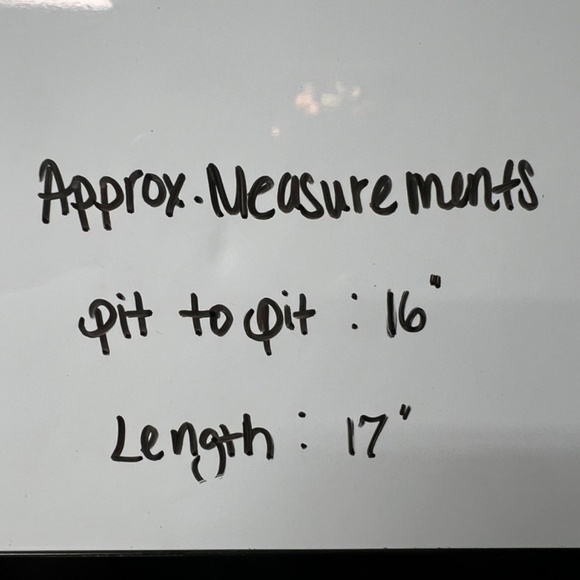 Approx. Measurements
pit to pit : 16"
Length : 17"